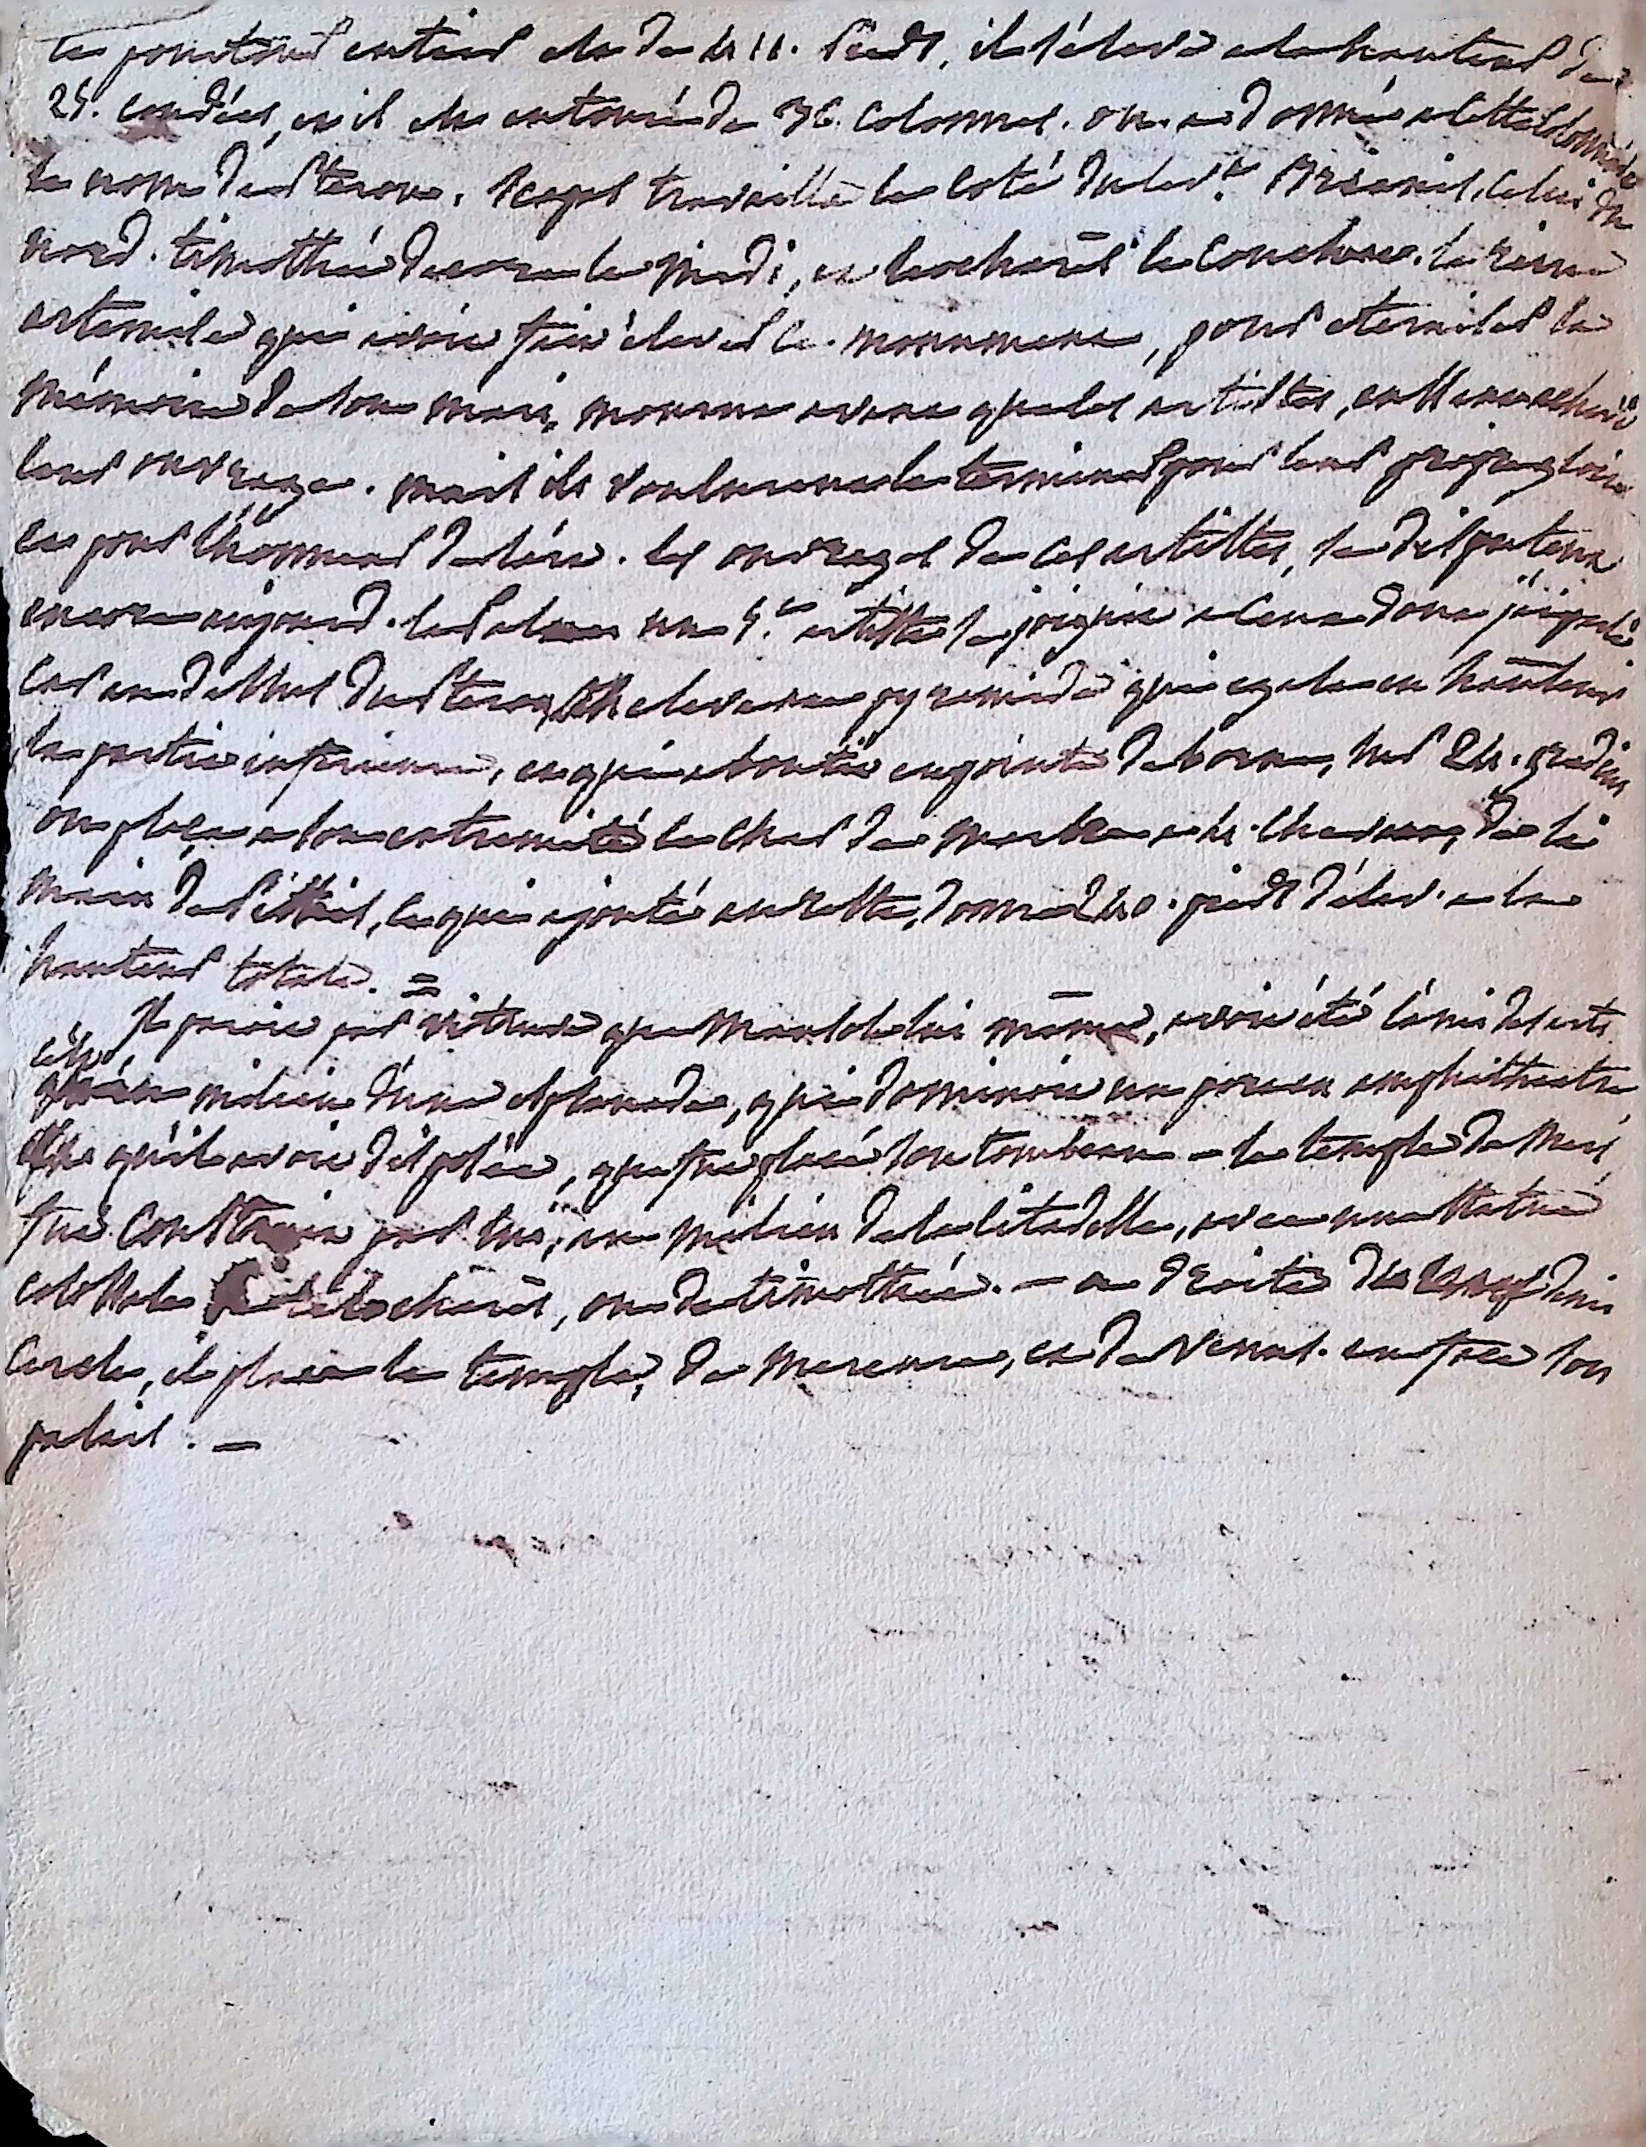 le pourtour entier est de 411. pieds, il s'éleve a la hauteur de
25. coudées, et il est entouré de 36 colonnes. on a donné a cette colonnade
le nom de Pteron. Scopas travailla le coté du lev.t Briaxis, celui du
nord. timothée decora le midi, et leocharès le couchant. la reine
artemise qui avoit fait élever ce monument, pour eterniser la
mémoire de son mari, mourut avant que les artistes, eussent achevé
leur ouvrage. mais ils voulurent le terminer pour leur propre gloire
et pour l'honneur de l'art. les ouvrages de ces artistes, se disputent
encore aujourd. la palme un 5.e artiste se joignit a ceux dont j'ai parlé
car au dessus du Pteron, on eleva une pyramide qui egale en hauteur
la partie inferieure, et qui aboutit en pointe de borne, sur 24. gradins
on plaça a son extremité le char de marbre a 4. chevaux, de la
main de Pithis, ce qui ajouté au reste, donne 240. pieds d'élev. a la
hauteur totale. =
Il paroit par vitruve que Mausole lui même, avoit été l'ami des arts.
c'est au milieu d'une esplanade, qui dominoit un port en amphitheatre
qu'il avoit disposée, que fut placé son tombeau — le temple de Mars
fut construit par lui, au milieu de la citadelle, avec une statue
colossale de léocharès, ou de timothée. — a droite du demi
cercle, il plaça le temple, de mercure, et de Venus. en face son
palais. —